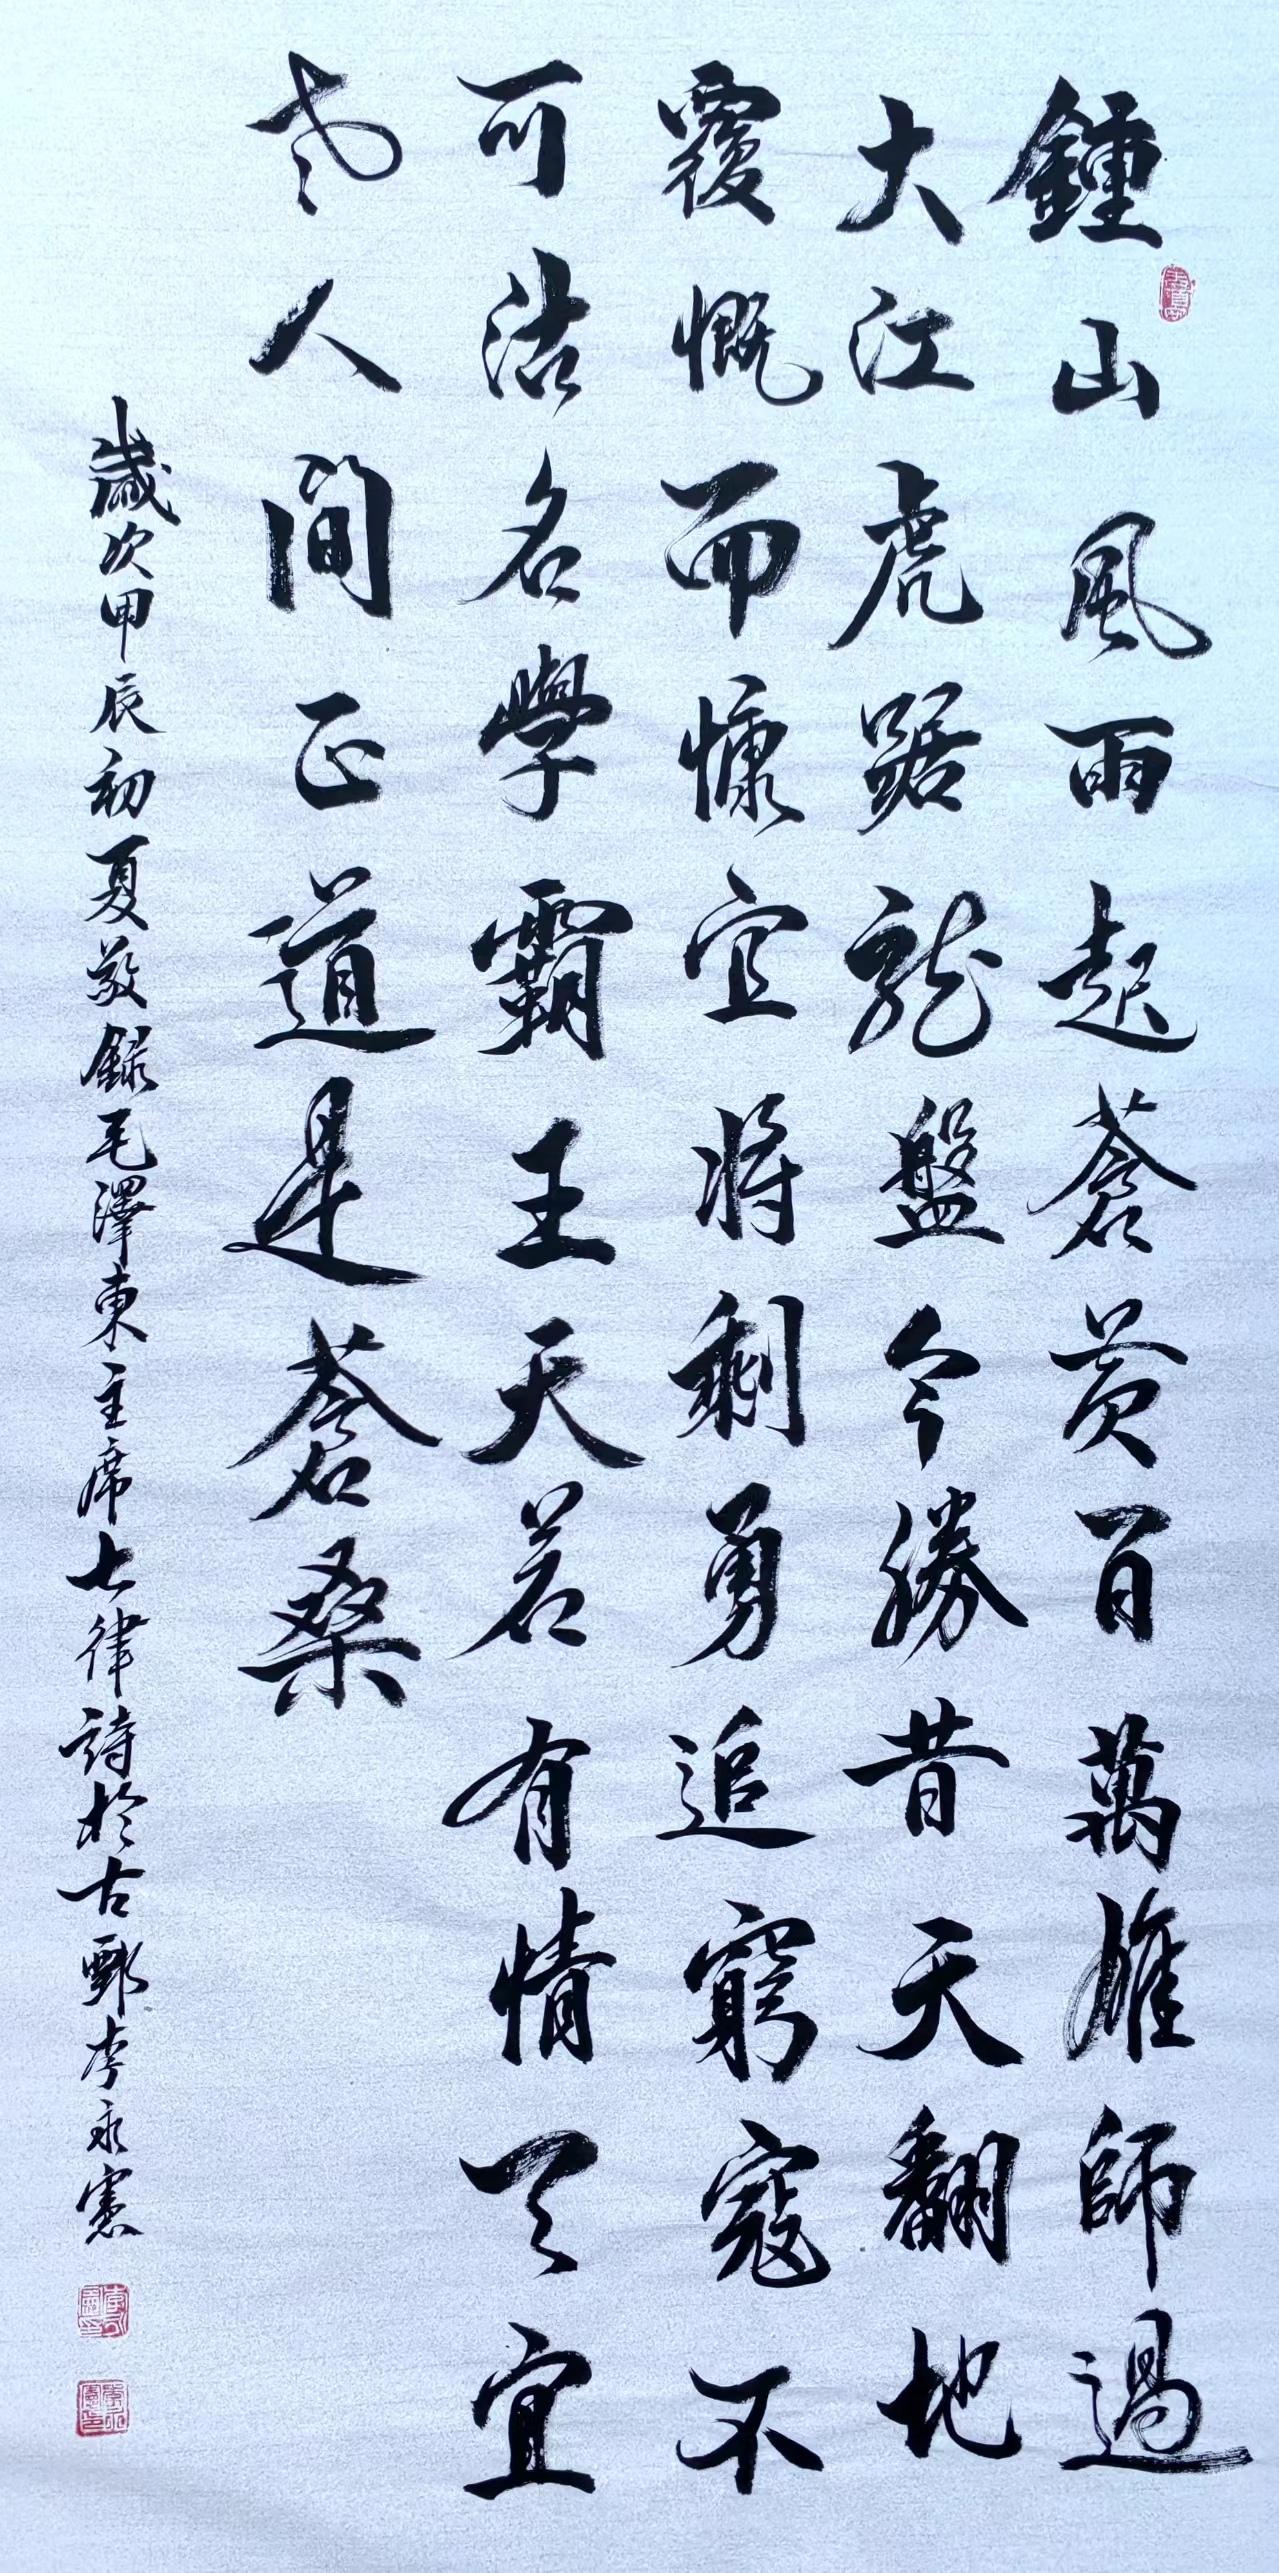 鍾山風雨起蒼黃百萬雄師過
大江虎踞龍盤今勝昔天翻地
覆慨而慷宜將剩勇追窮寇不
可沽名學霸王天若有情天宜
老人間正道是蒼桑
歲次甲辰初夏敬錄毛澤東主席七律詩於古鄄李永憲